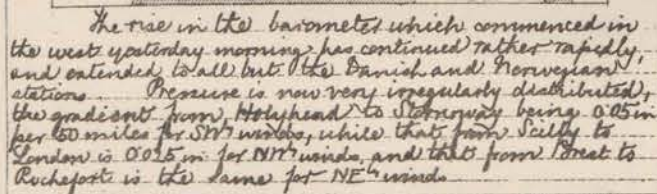 The rise in the barometer which commenced in
the west yesterday morning has continued rather rapidly,
and extended to all but the Danish and Norwegian
stations. Pressure is now very irregularly distributed,
the gradient from Holyhead to Stornoway being 0.05 in
per 50 miles for SWly winds, while that from Scilly to
London is 0.025 in for NWly winds, and that from Brest to
Rochefort is the same for NEly winds